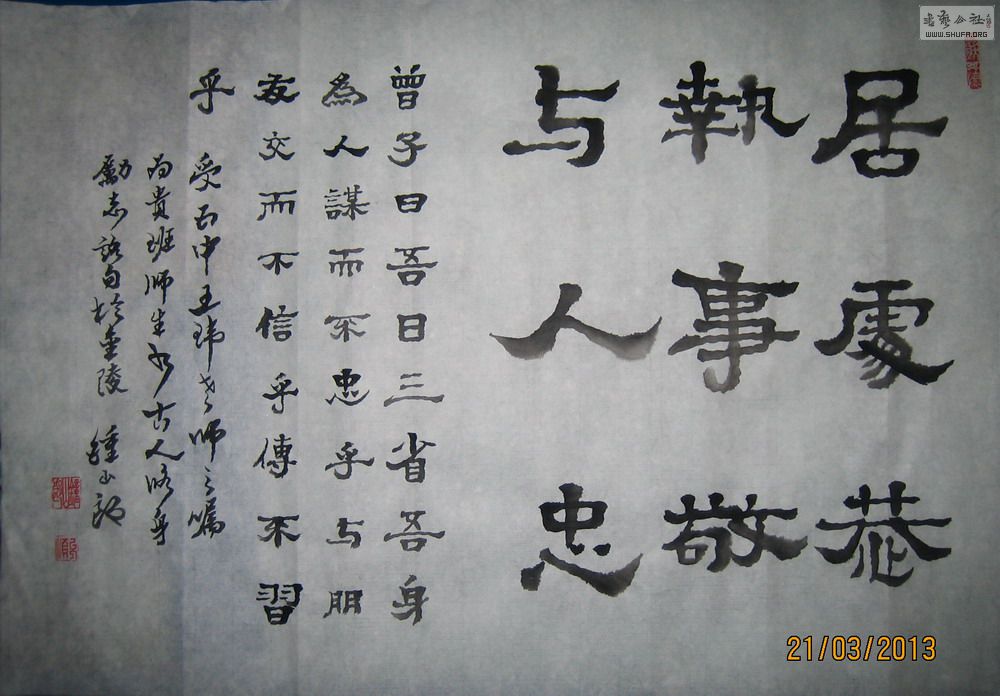 居處恭
執事敬
与人忠
曾子曰吾日三省吾身
為人謀而不忠乎与朋
友交而不信乎傳不習
乎
受 中王玮老师之嘱
为貴班师生 古人修身
勵志 句於金陵 鍾山
WWW.SHUFA.ORG
21/03/2013